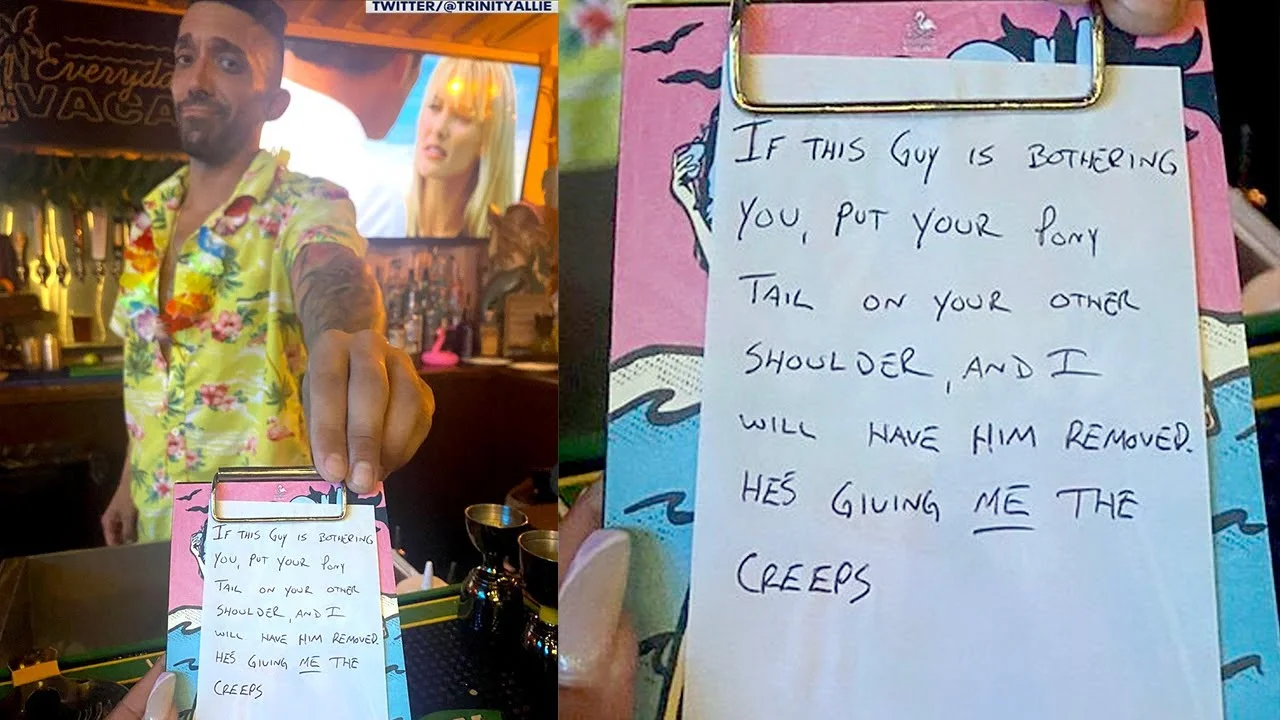 TWITTER/@TRINITYALLIE
Everyda
VACA
IF THIS GUY IS BOTHERING
YOU, PUT YOUR PONY
TAIL ON YOUR OTHER
SHOULDER, AND I
WILL HAVE HIM REMOVED.
HE'S GIVING ME THE
CREEPS
IF THIS GUY IS BOTHERING
YOU, PUT YOUR PONY
TAIL ON YOUR OTHER
SHOULDER, AND I
WILL HAVE HIM REMOVED.
HE'S GIVING ME THE
CREEPS